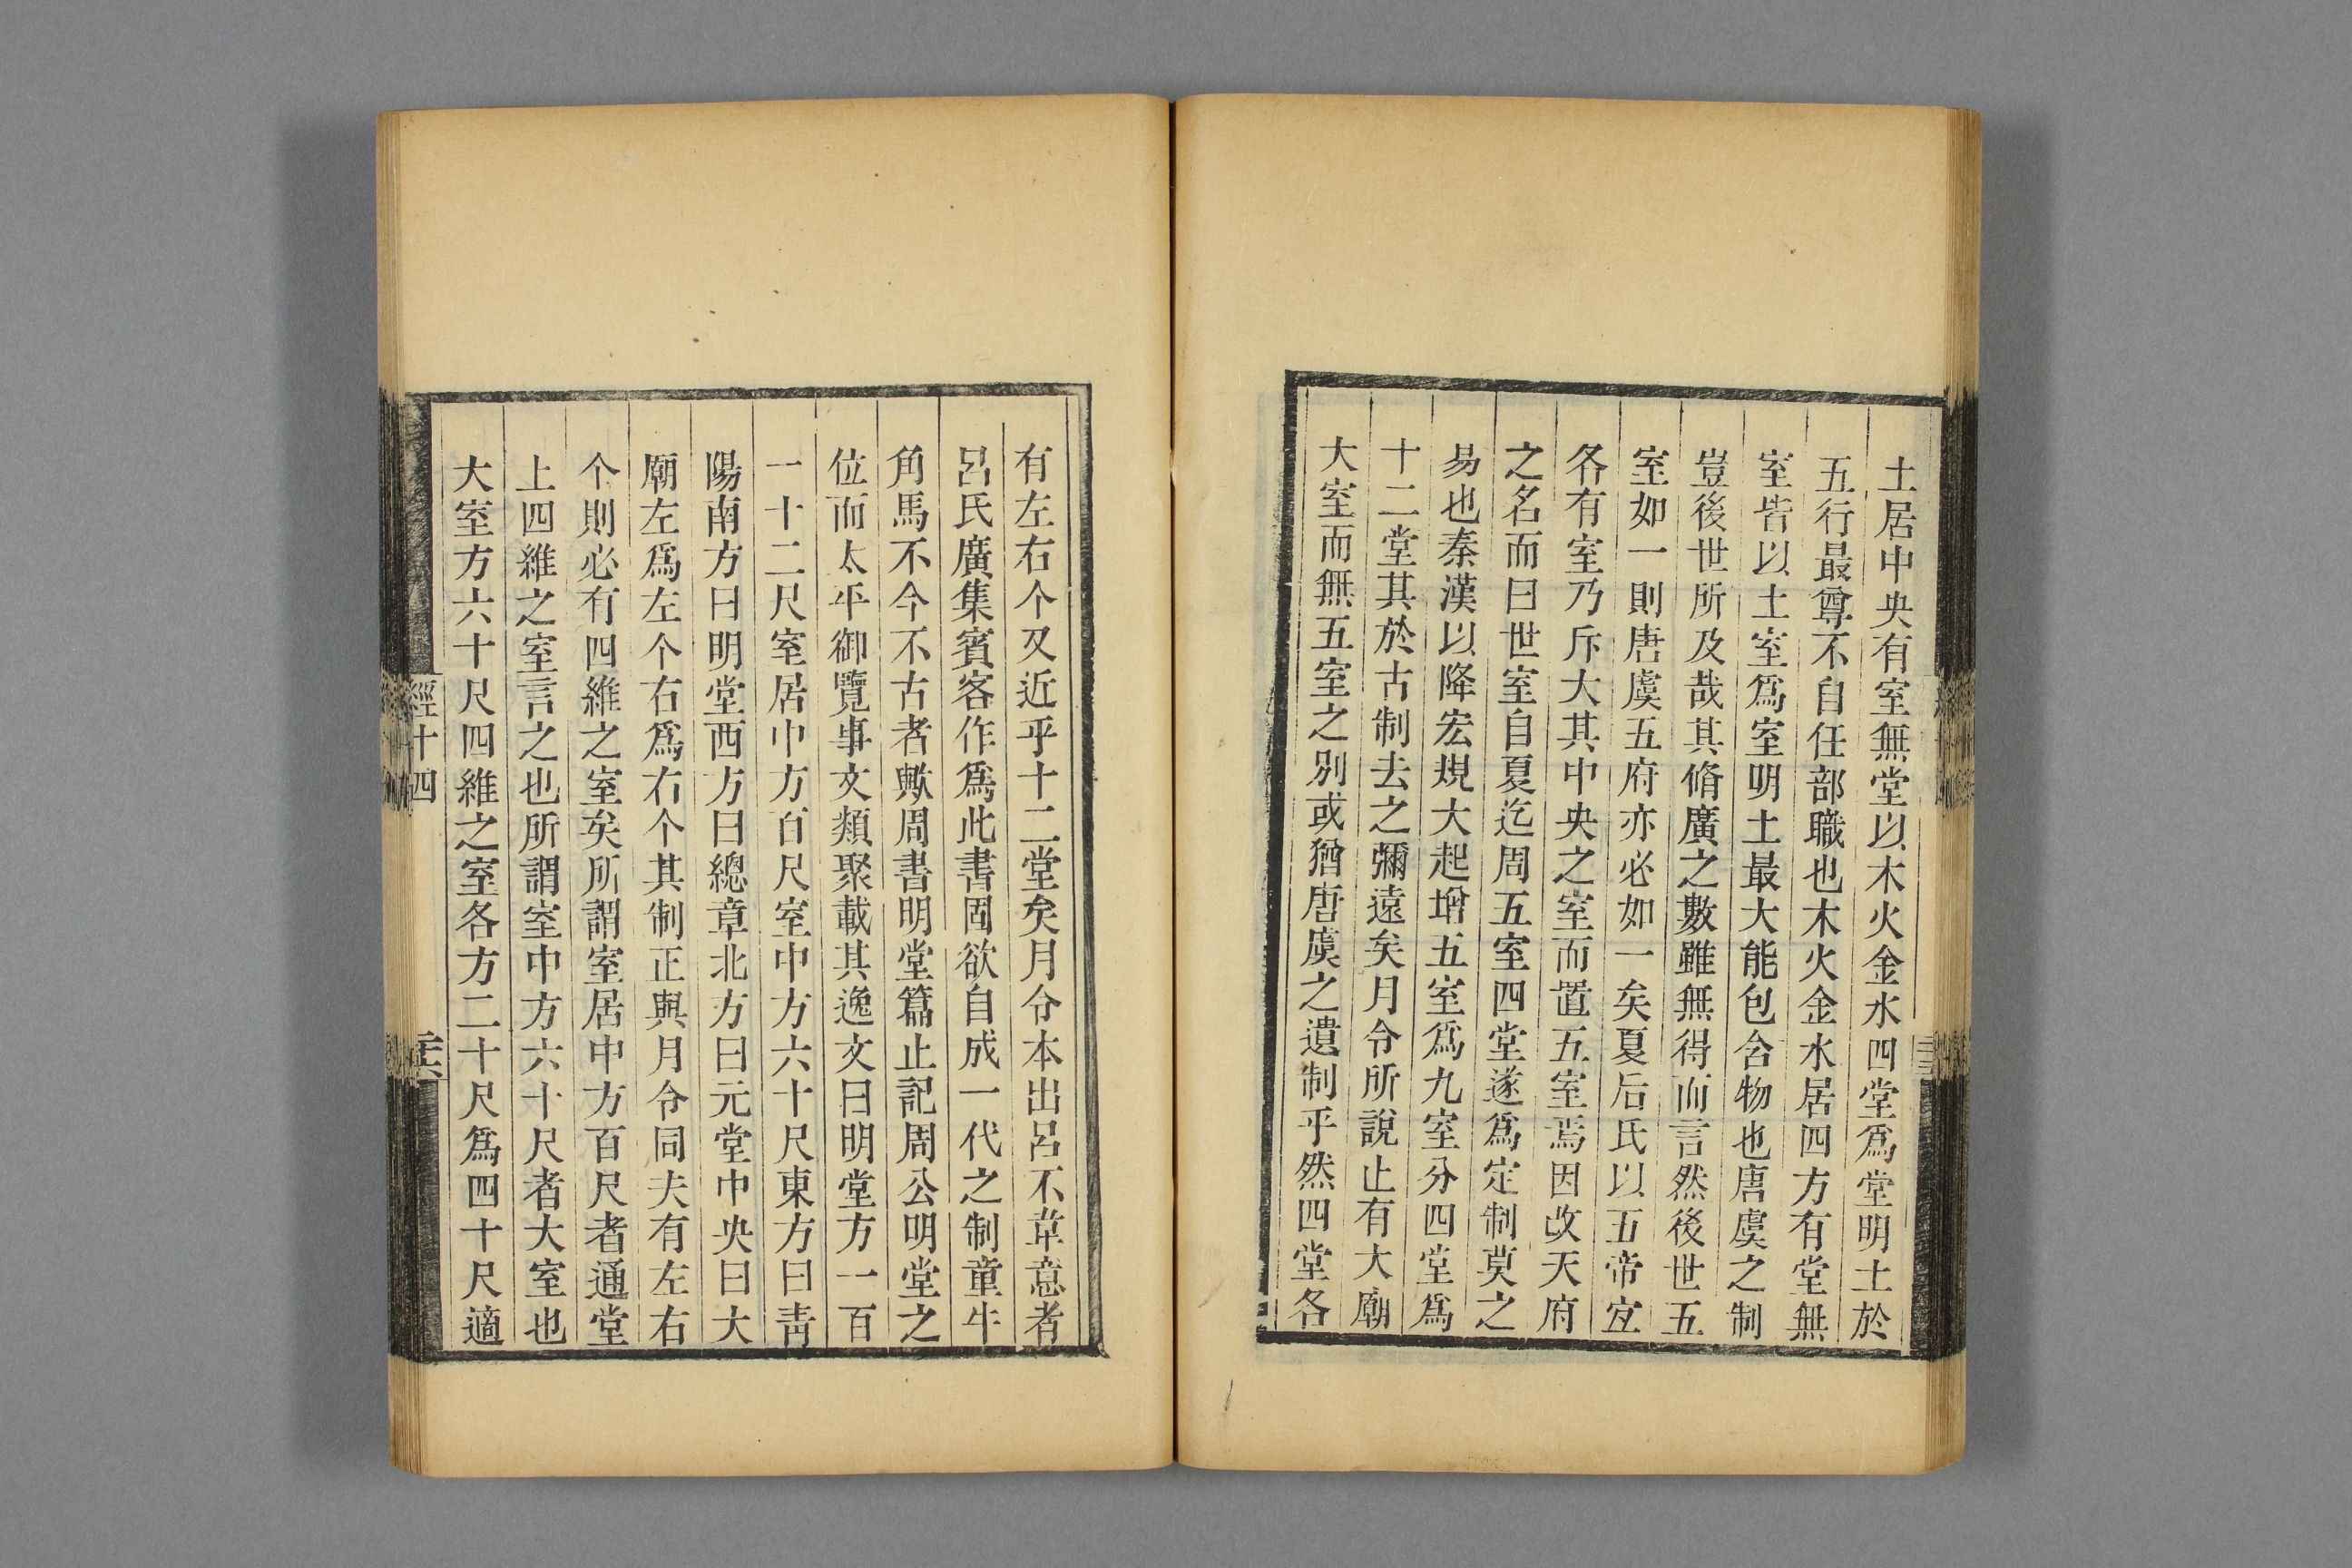 土居中央有室無堂以木火金水四堂爲堂明土於
五行最尊不自任部職也木火金水居四方有堂無
室皆以土室爲室明土最大能包含物也唐虞之制
豈後世所及哉其脩廣之數雖無得而言然後世五
室如一則唐虞五府亦必如一矣夏后氏以五帝宐
各有室乃斥大其中央之室而置五室焉因改天府
之名而曰世室自夏迄周五室四堂遂爲定制莫之
易也秦漢以降宏規大起增五室爲九室分四堂爲
十二堂其於古制去之彌遠矣月令所說止有大廟
大室而無五室之別或猶唐虞之遺制乎然四堂各
有左右个又近乎十二堂矣月令本出呂不韋意者
呂氏廣集賓客作爲此書固欲自成一代之制童牛
角馬不今不古者歟周書明堂篇止記周公明堂之
位而太平御覽事文類聚載其逸文曰明堂方一百
一十二尺室居中方百尺室中方六十尺東方曰靑
陽南方曰明堂西方曰總章北方曰元堂中央曰大
廟左爲左个右爲右个其制正與月令同夫有左右
个則必有四維之室矣所謂室居中方百尺者通堂
上四維之室言之也所謂室中方六十尺者大室也
大室方六十尺四維之室各方二十尺爲四十尺適
經十四